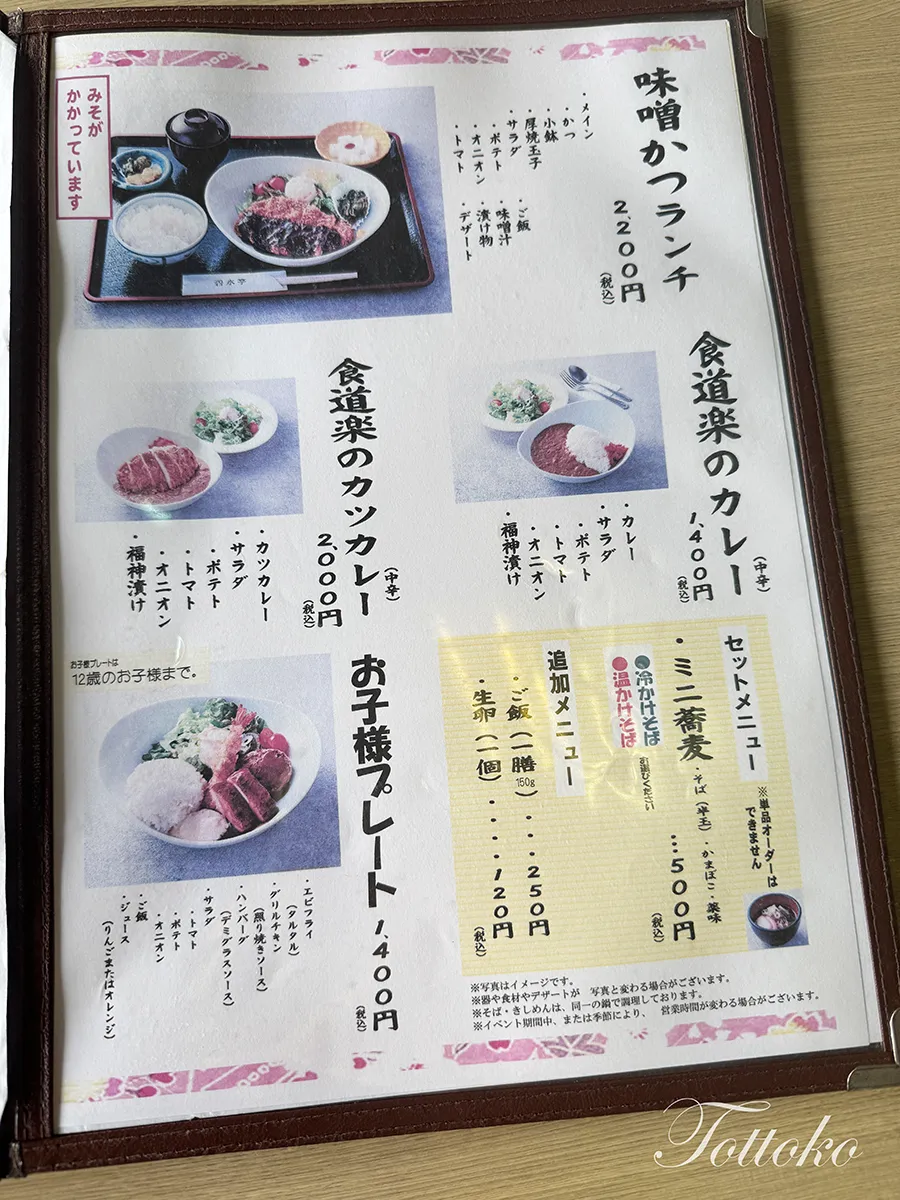 味噌かつランチ
2,200円
(税込)
・メイン
・かつ
・小鉢
・厚焼玉子
・サラダ
・ポテト
・オニオン
・トマト
・ご飯
・味噌汁
・漬け物
・デザート
みそが
かかっています
四水亭
食道楽のカレー
(中辛)
1,400円
(税込)
・カレー
・サラダ
・ポテト
・トマト
・オニオン
・福神漬け
食道楽のカツカレー
(中辛)
2,000円
(税込)
・カツカレー
・サラダ
・ポテト
・トマト
・オニオン
・福神漬け
セットメニュー
※単品オーダーは
できません
・ミニ蕎麦
・そば(半玉)・かまぼこ・薬味
…500円
(税込)
●冷かけそば
●温かけそば
お選びください
追加メニュー
・ご飯(一膳)・・・250円
150g
・生卵(一個)・・・・120円
(税込)
お子様プレート
1,400円
(税込)
お子様プレートは
12歳のお子様まで。
・エビフライ
(タルタル)
・グリルチキン
(照り焼きソース)
・ハンバーグ
(デミグラスソース)
・サラダ
・トマト
・ポテト
・オニオン
・ご飯
・ジュース
(りんごまたはオレンジ)
※写真はイメージです。
※器や食材やデザートが 写真と変わる場合がございます。
※そば・きしめんは、同一の鍋で調理しております。
※イベント期間中、または季節により、 営業時間が変わる場合がございます。
Tottoko